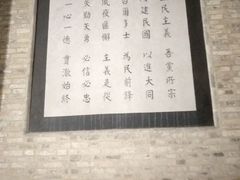 民主義 吾黨所宗
建民國 以進大同
爾多士 為民前鋒
夙夜匪懈 主義是從
矢勤矢勇 必信必忠
一心一德 貫澈始終